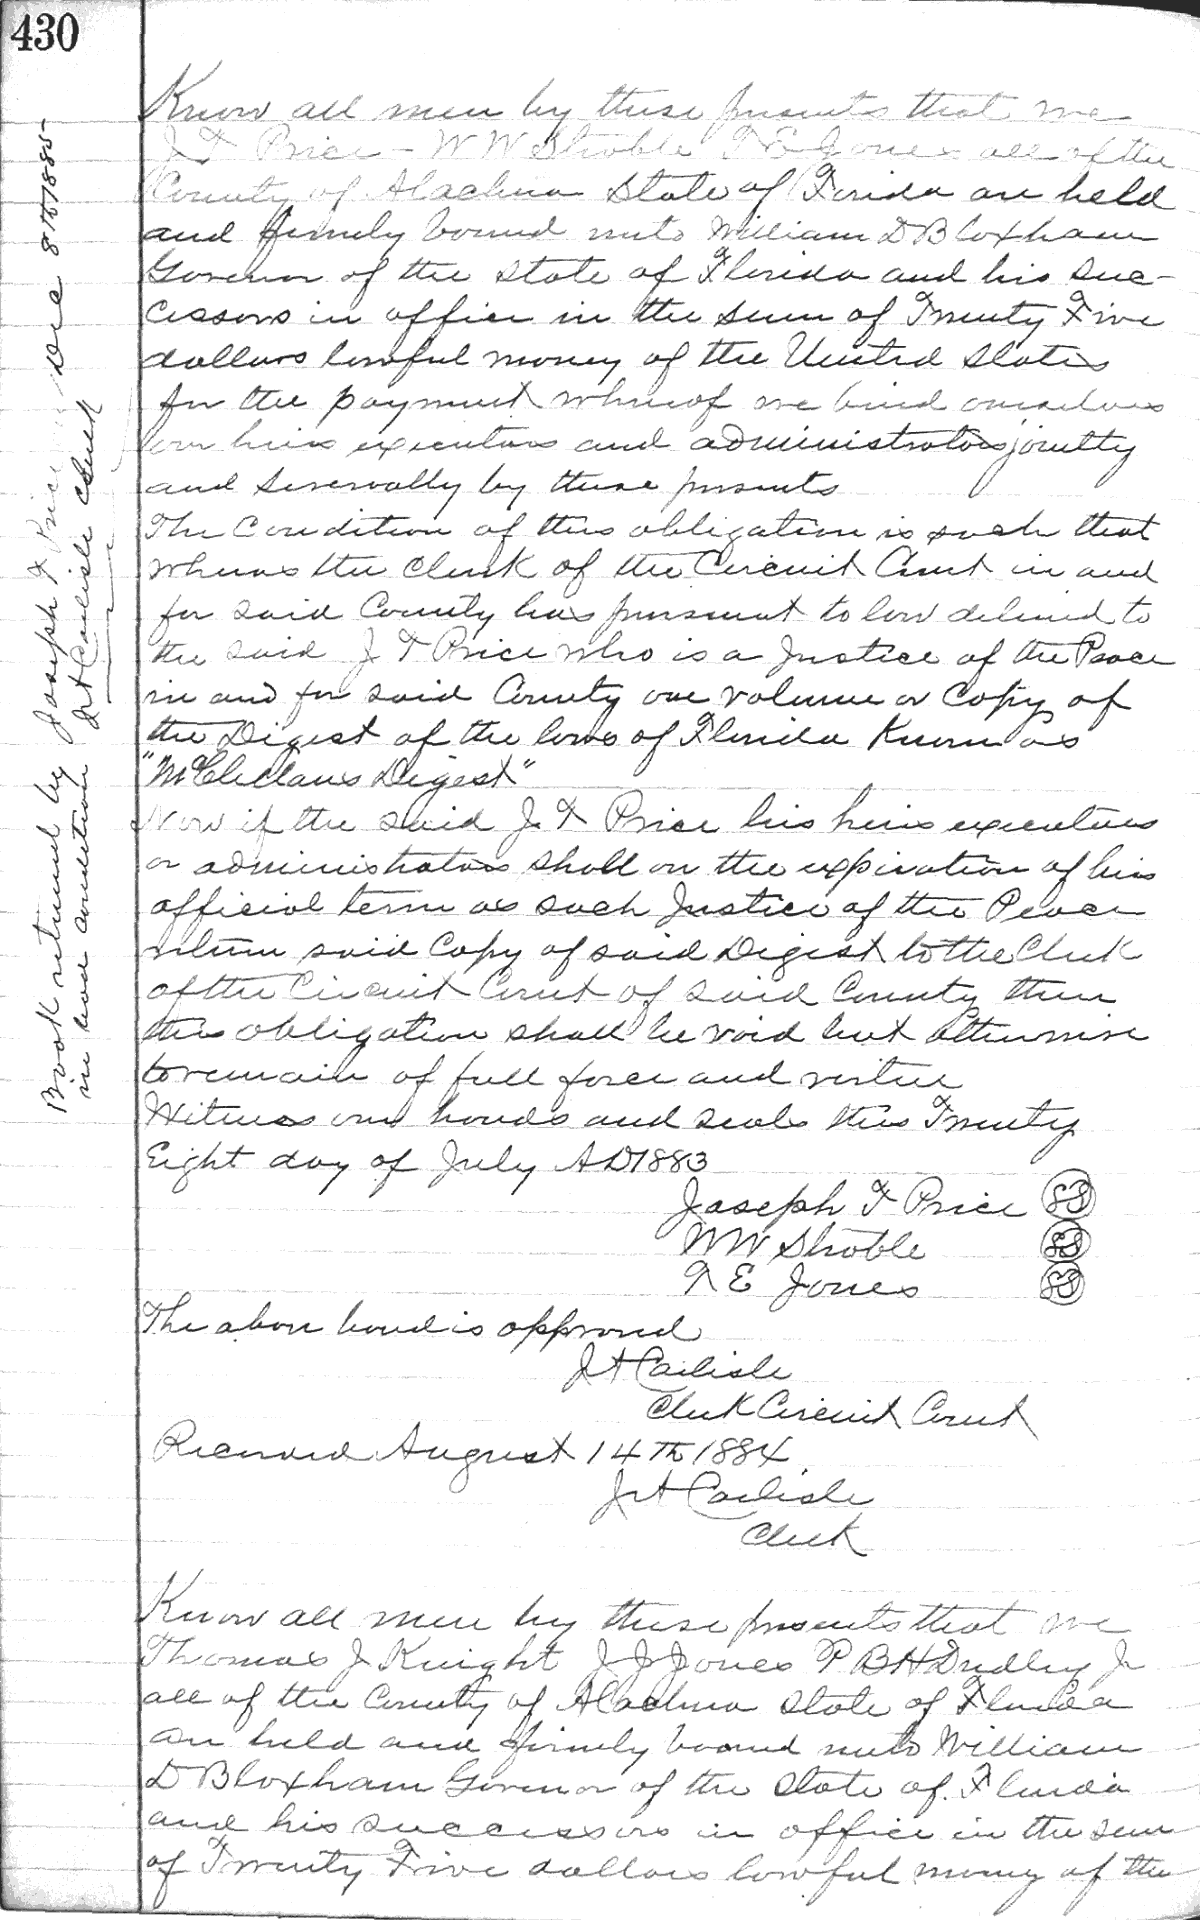 430
Know all men by these presents that we
J F Price - W W Shoble F E Jones all of the
County of Alachua State of Florida are held
and firmly bound unto William D Bloxham
Governor of the State of Florida and his suc-
cessors in office in the sum of Twenty Five
dollars lawful money of the United States
for the payment whereof we bind ourselves
our heirs executors and administrators jointly
and severally by these presents
The Condition of this obligation is such that
whereas the Clerk of the Circuit Court in and
for said County has pursuant to law delivered to
the said J F Price who is a Justice of the Peace
in and for said County one volume or Copy of
the Digest of the laws of Florida Known as
"McClellans Digest"
Now if the said J. F Price his heirs executors
or administrators shall on the expiration of his
official term as such Justice of the Peace
return said Copy of said Digest to the Clerk
of the Circuit Court of said County then
this obligation shall be void but otherwise
to remain of full force and virtue
Witness our hands and seals this Twenty
Eight day of July AD 1883
Joseph F Price SS
W W Shoble SS
F E Jones SS
The above bond is approved
J A Carlisle
Clerk Circuit Court
Recorded August 14th 1884
J A Carlisle
Clerk
Know all men by these presents that we
Thomas J Knight J J Jones P B H Dudley Jr
all of the County of Alachua State of Florida
are held and firmly bound unto William
D Bloxham Governor of the State of Florida
and his successors in office in the sum
of Twenty Five dollars lawful money of the
Book returned by Joseph F Price Dec 8th 1885-
in bad condition J A Carlisle Clerk